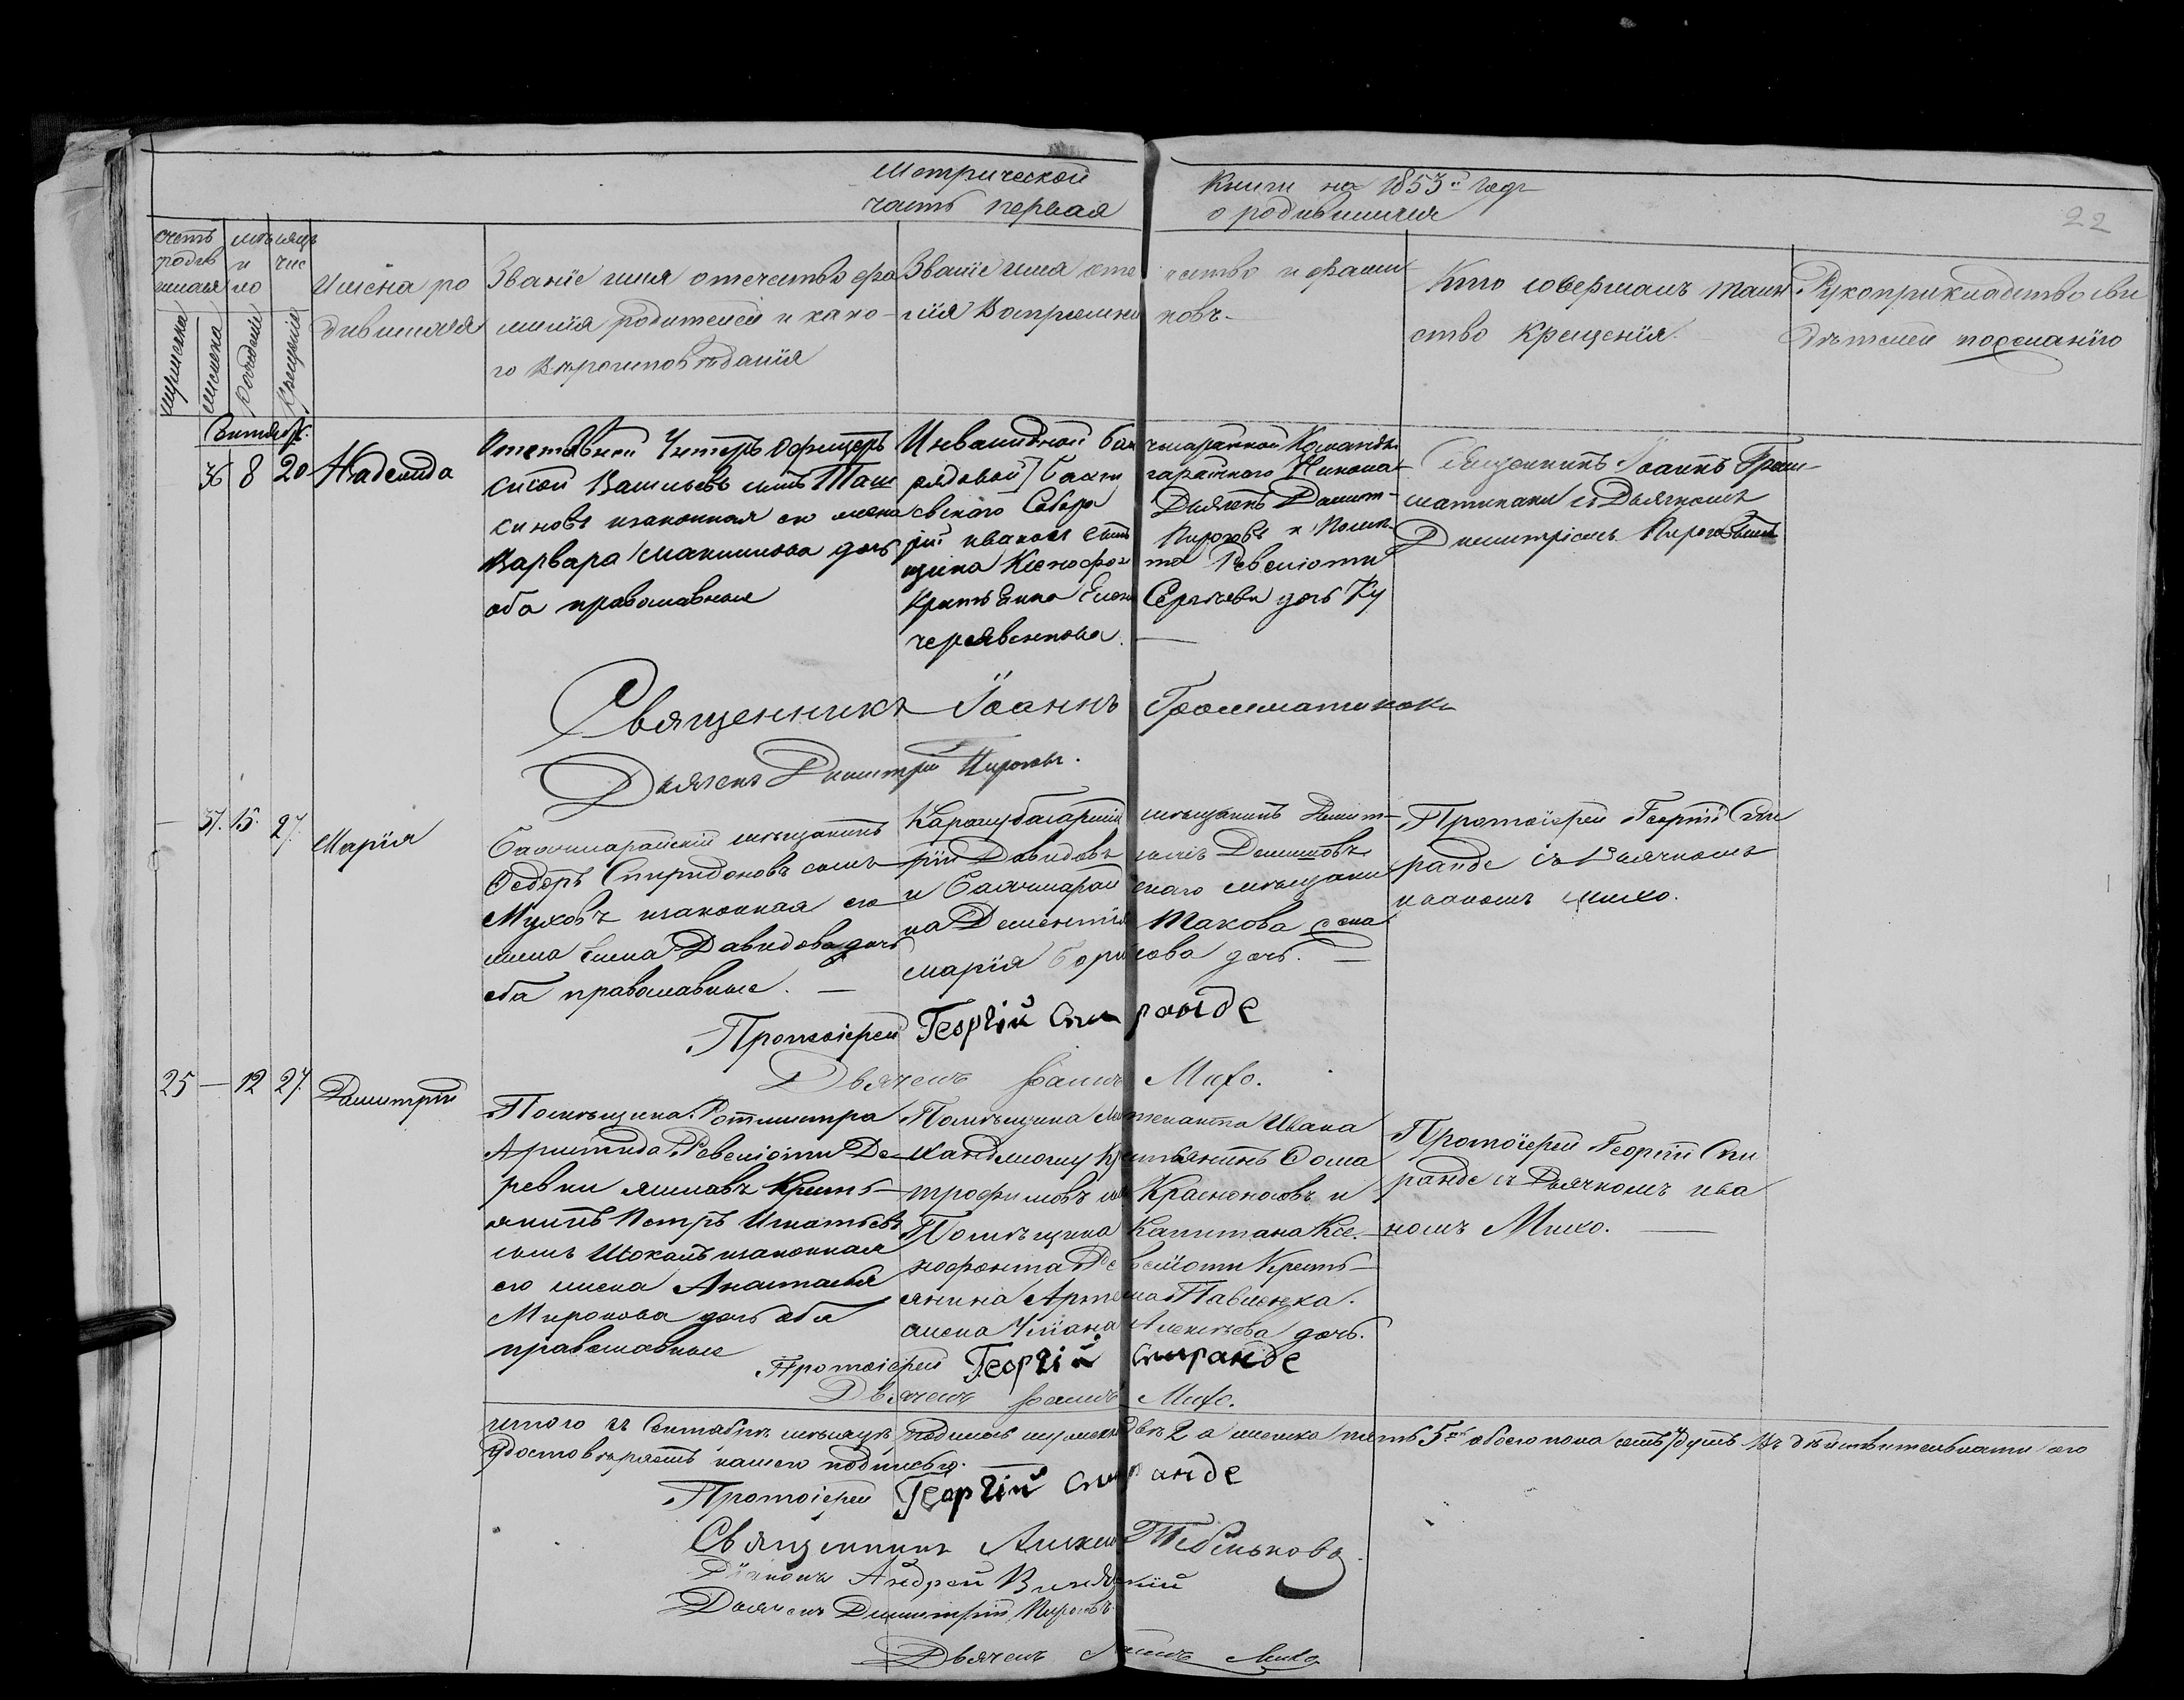 Метрической Книги на 1853й Годъ
часть первая о родившихся
22
счетъ родив шихся
мужеска
женска
мѣсяцъ и число
рожденія
крещенія
Имена ро
дившихся
Званіе имя отечество фа
милія родителей и како-
го вѣроисповѣданія
Званіе имя оте чество и фами
лія Воспріемни ковъ.
Кто совершалъ таин
ство Крещенія.
Рукоприкладство сви
дѣтелей по желанію
Сентябрь.
36 8 20 Надежда
Отставной Унтеръ Офицеръ
Васильевъ сынъ
законная его жена
Варвара Максимова дочь
оба православные
Инвалидной команды
рядовой
Собора Дьячекъ Димит-
рій Ивановъ сынъ Пироговъ и Помѣ-
щика Ксенофонта Ревеліоти
Крестьянка Елена Сергѣева дочь Ку
черявенкова.
Священникъ Іоаннъ Грам-
матикаки съ Дьячкомъ
Димитріемъ Пироговымъ
Священникъ Іоаннъ Грамматикаки
Дьячекъ Димитрій Пироговъ.
— 37. 15. 27. Марія
Бахчисарайскій мѣщанинъ
Федоръ Спиридоновъ сынъ
Муховъ законная его
жена Елена Давидова дочь
оба православные. —
Карасубазарскій мѣщанинъ Димит-
рій Давидовъ сынъ
и Бахчисарайскаго мѣщани
на Дементія жена
марія Борисова дочь. —
Протоіерей Георгій Спи
ранде съ Дьячкомъ
иваномъ михо.
Протоіерей Георгій Спиранде
Дьячекъ Іоаннъ Михо.
25 — 12 27. Димитрій
Помѣщика Ротмистра
Аристида Ревеліоти Де-
ревни Крестъ-
янинъ Петръ Игнатьевъ
сынъ законная
его жена Анастасія
Миронова дочь оба
православные
Помѣщика Ивана
Крестьянинъ Фома
трофимовъ сынъ Красноносовъ и
Помѣщика Капитана Ксе-
нофонта Ревеліоти Кресть-
янина Артема Павленка.
жена Уліана Алексѣева дочь.
Протоіерей Георгій Спи
ранде съ Дьячкомъ ива
номъ Михо. —
Протоіерей Георгій Спиранде
Дьячекъ Іоаннъ Михо.
итого въ Сентябрѣ мѣсяцѣ родилось мужеска 2 а женска пять 5 обоего пола семь 7 душъ. Въ дѣйствительности сего
удостовѣряемъ нашею подписью.
Протоіерей Георгій Спиранде
Священникъ Алексій Тебеньковъ
Діаконъ Андрей
Дьячекъ Димитрій Пироговъ
Дьячекъ Іоаннъ Михо